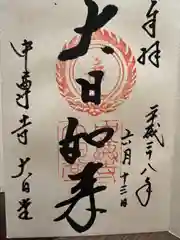 奉拝
平成二八年
六月
大日如来
中尊寺 大日堂